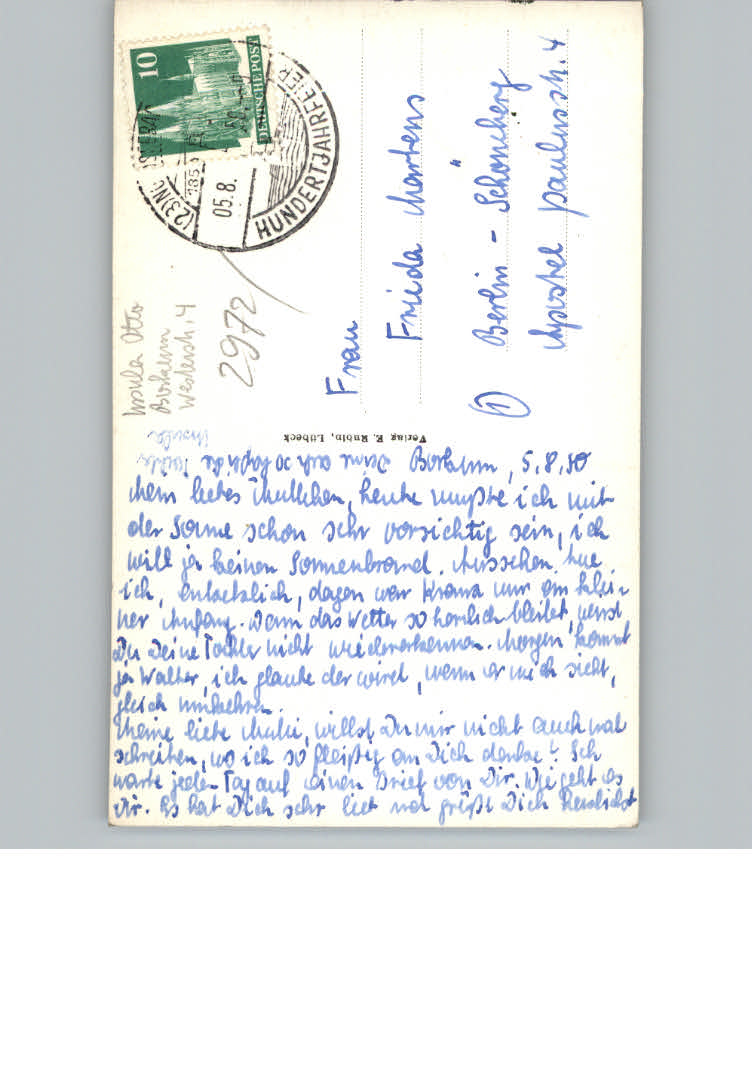 10
DEUTSCHE POST
(23) NO
05.8.
HUNDERTJAHRFEIER
Ursula Otto
Borkum
Westerstr. 4
2972
Frau
Frieda Martens
① Berlin - Schöneberg
Apostel Paulusstr. 4
Verlag E. Rubin, Lübeck
Borkum, 5.8.50
Mein liebes Muttchen, heute mußte ich mit
der Sonne schon sehr vorsichtig sein, ich
will ja keinen Sonnenbrand. Aussehen tue
ich, entsetzlich, dagegen war Krana nur ein klei-
ner Anfang. Wenn das Wetter so herrlich bleibt, wirst
Du Deine Tochter nicht wiedererkennen. Morgen kommt
ja Walter, ich glaube der wird, wenn er mich sieht,
gleich umkehren.
Meine liebe Mutti, willst Du mir nicht auch mal
schreiben, wo ich so fleißig an Dich denke? Ich
warte jeden Tag auf einen Brief von Dir. Wie geht es
Dir. Es hat Dich sehr lieb und grüßt Dich herzlichst
Deine ach so
Tochter
Ursula